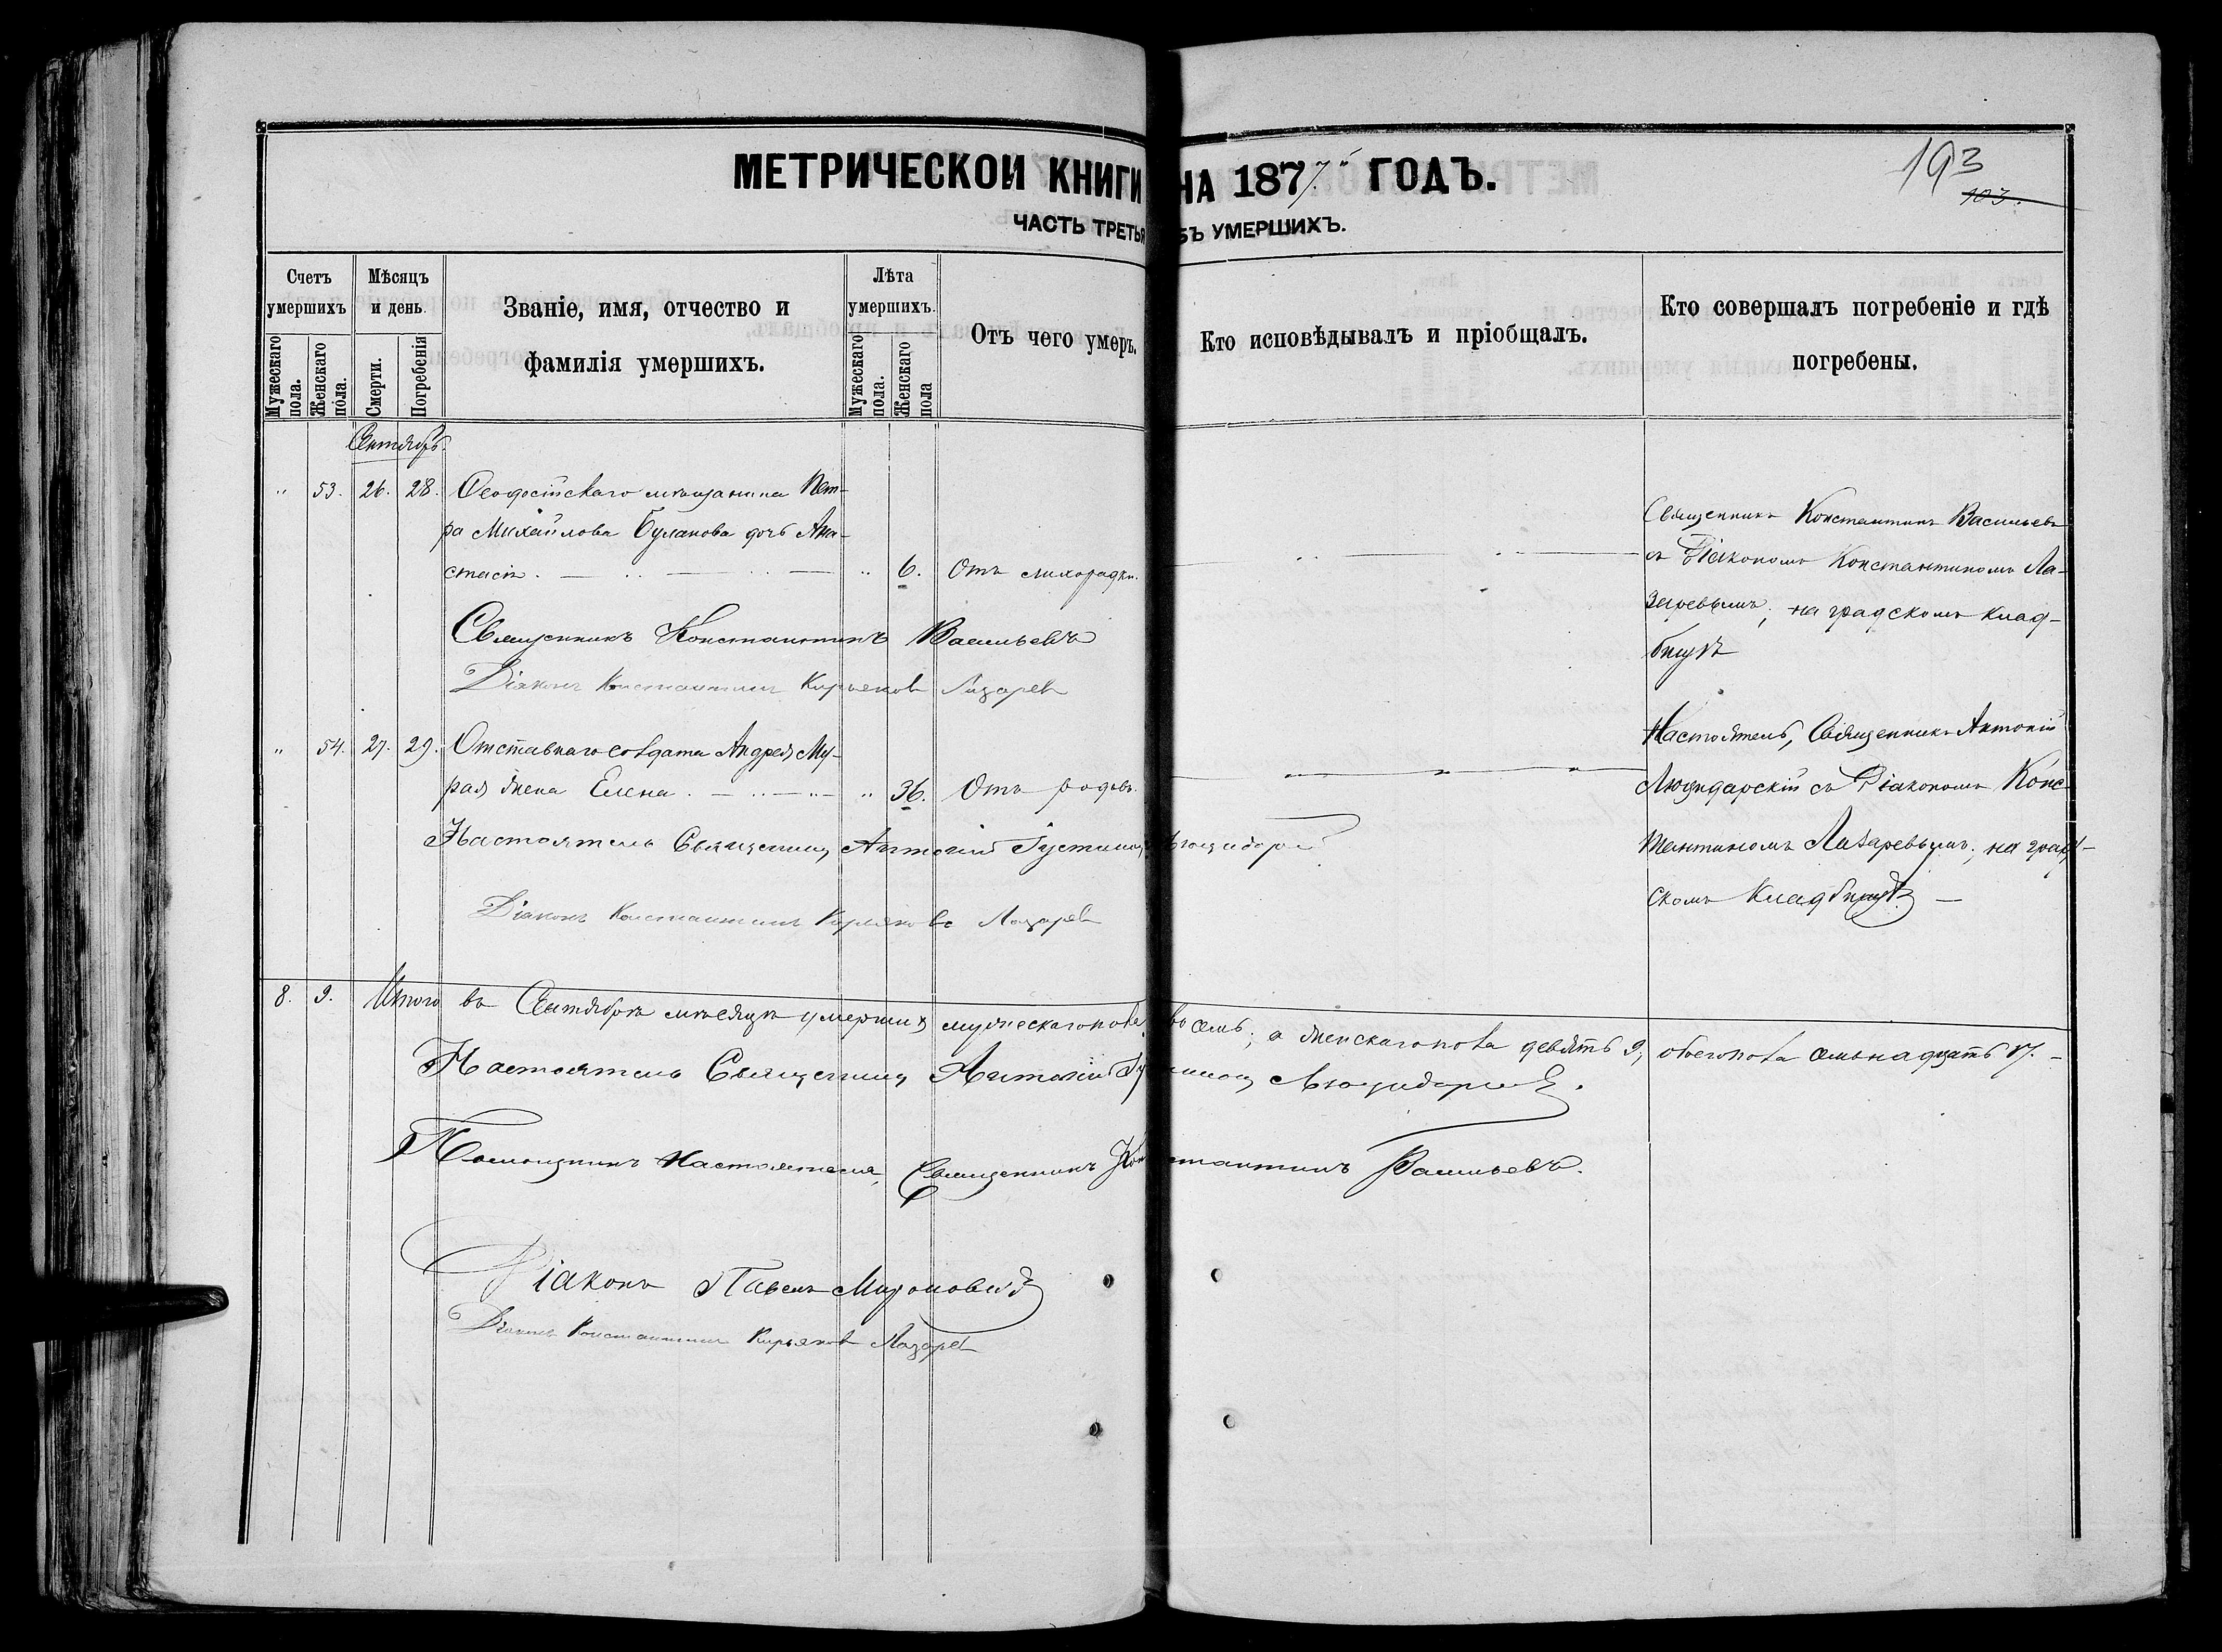 МЕТРИЧЕСКОЙ КНИГИ НА 1877 ГОДЪ.
193
103.
ЧАСТЬ ТРЕТЬЯ ОБЪ УМЕРШИХЪ.
Счетъ умершихъ.
Мужескаго пола.
Женскаго пола.
Мѣсяцъ и день.
Смерти.
Погребенія
Званіе, имя, отчество и фамилія умершихъ.
Лѣта умершихъ.
Мужескаго пола.
Женскаго пола
Отъ чего умеръ.
Кто исповѣдывалъ и пріобщалъ.
Кто совершалъ погребеніе и гдѣ погребены.
Сентябрь.
" 53. 26. 28. Ѳеодосійскаго мѣщанина Пет-
ра Михайлова Буланова дочь Ана-
стасія. " 6. Отъ лихорадки.
Священникъ Константинъ Васильевъ
съ Діакономъ Константиномъ Ла-
заревымъ; на градскомъ клад-
бищѣ
Священникъ Константинъ Васильевъ
Діаконъ Константинъ Кирьяковъ Лазарев
" 54. 27. 29. Отставнаго солдата Андрея Му-
рая жена Елена. " 36. Отъ родовъ.
Настоятель, Священникъ Антоній
Люцидарскій съ Діакономъ Конс-
тантиномъ Лазаревымъ; на град-
скомъ кладбищѣ
Настоятель Священникъ Антоній Іустинов Люцидарскій
Діаконъ Константинъ Кирьяковъ Лазарев
8. 9. Итого въ Сентябрѣ мѣсяцѣ умершихъ мужескаго пола восемь; а женскаго пола девять 9, обоего пола семьнадцать 17.
Настоятель Священникъ Антоній Люцидарскій.
Помощникъ Настоятеля, Священникъ Константинъ Васильевъ.
Діаконъ Павелъ
Діаконъ Константинъ Кирьяков Лазарев